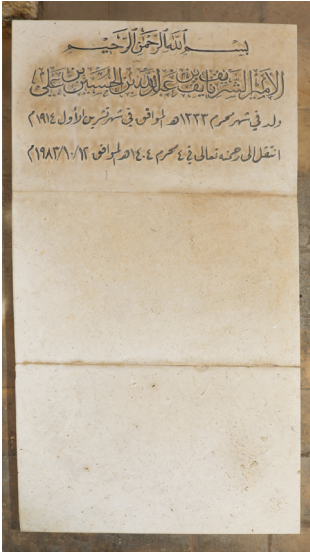 بسم الله الرحمن الرحيم
الأمير الشريف نايف بن عبدالله بن الحسين بن علي
ولد في شهر محرم ١٣٣٣هـ الموافق في شهر تشرين الأول ١٩١٤م
انتقل الى رحمته تعالى في ٤ محرم ١٤٠٤هـ الموافق ١٩٨٣/١٠/١٢م